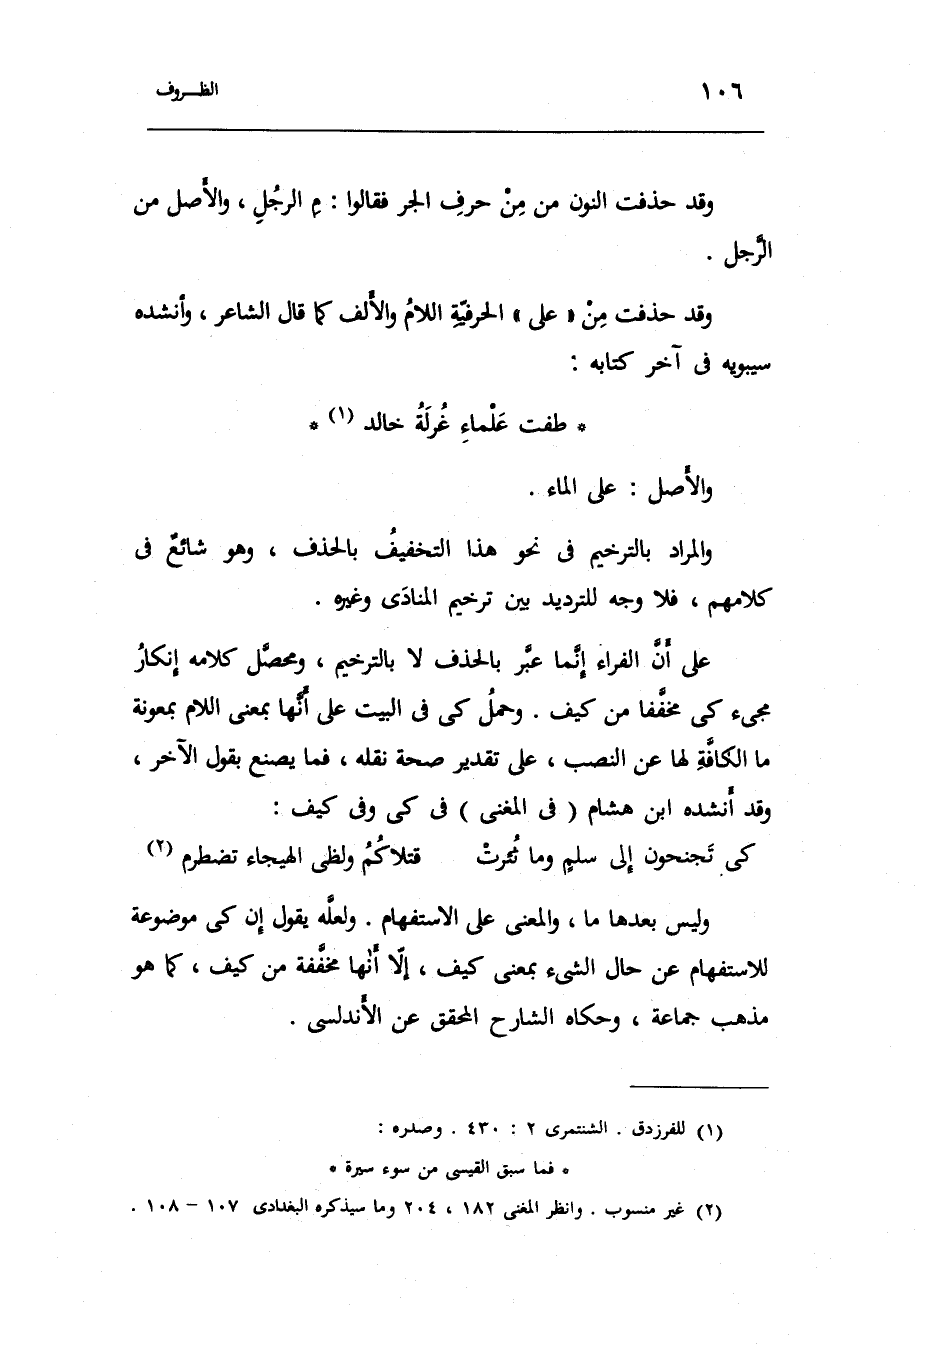 ١٠٦ الظــروف
وقد حذفت النون من مِنْ حرفِ الجر فقالوا : مِ الرجُلِ ، والأَصل من
الرَّجل .
وقد حذفت مِنْ « على » الحرفيّةِ اللامُ والأَلف كما قال الشاعر ، وأنشده
سيبويه فى آخر كتابه :
* طفت عَلْماءِ غُرلَةُ خالد (١) *
والأَصل : على الماء .
والمراد بالترخيم فى نحو هذا التخفيفُ بالحذف ، وهو شائعٌ فى
كلامهم ، فلا وجه للترديد بين ترخيم المنادَى وغيره .
على أَنَّ الفراء إِنَّما عبَّر بالحذف لا بالترخيم ، ومحصَّل كلامه إنكارُ
مجىء كى مخفَّفا من كيف . وحملُ كى فى البيت على أَنَّها بمعنى اللام بمعونة
ما الكافَّةِ لها عن النصب ، على تقدير صحة نقله ، فما يصنع بقول الآخر ،
وقد أَنشده ابن هشام ( فى المغنى ) فى كى وفى كيف :
كى تَجنحون إلى سلمٍ وما ثُئِرتْ قتلاكُمُ ولظى الهيجاء تضطرم (٢)
وليس بعدها ما ، والمعنى على الاستفهام . ولعلَّه يقول إن كى موضوعة
للاستفهام عن حال الشىء بمعنى كيف ، إلّا أَنَّها مخفَّفة من كيف ، كما هو
مذهب جماعة ، وحكاه الشارح المحقق عن الأَندلسى .
(١) للفرزدق . الشنتمرى ٢ : ٤٣٠ . وصدره :
* فما سبق القيسى من سوء سيرة *
(٢) غير منسوب . وانظر المغنى ١٨٢ ، ٢٠٤ وما سيذكره البغدادى ١٠٧ – ١٠٨ .